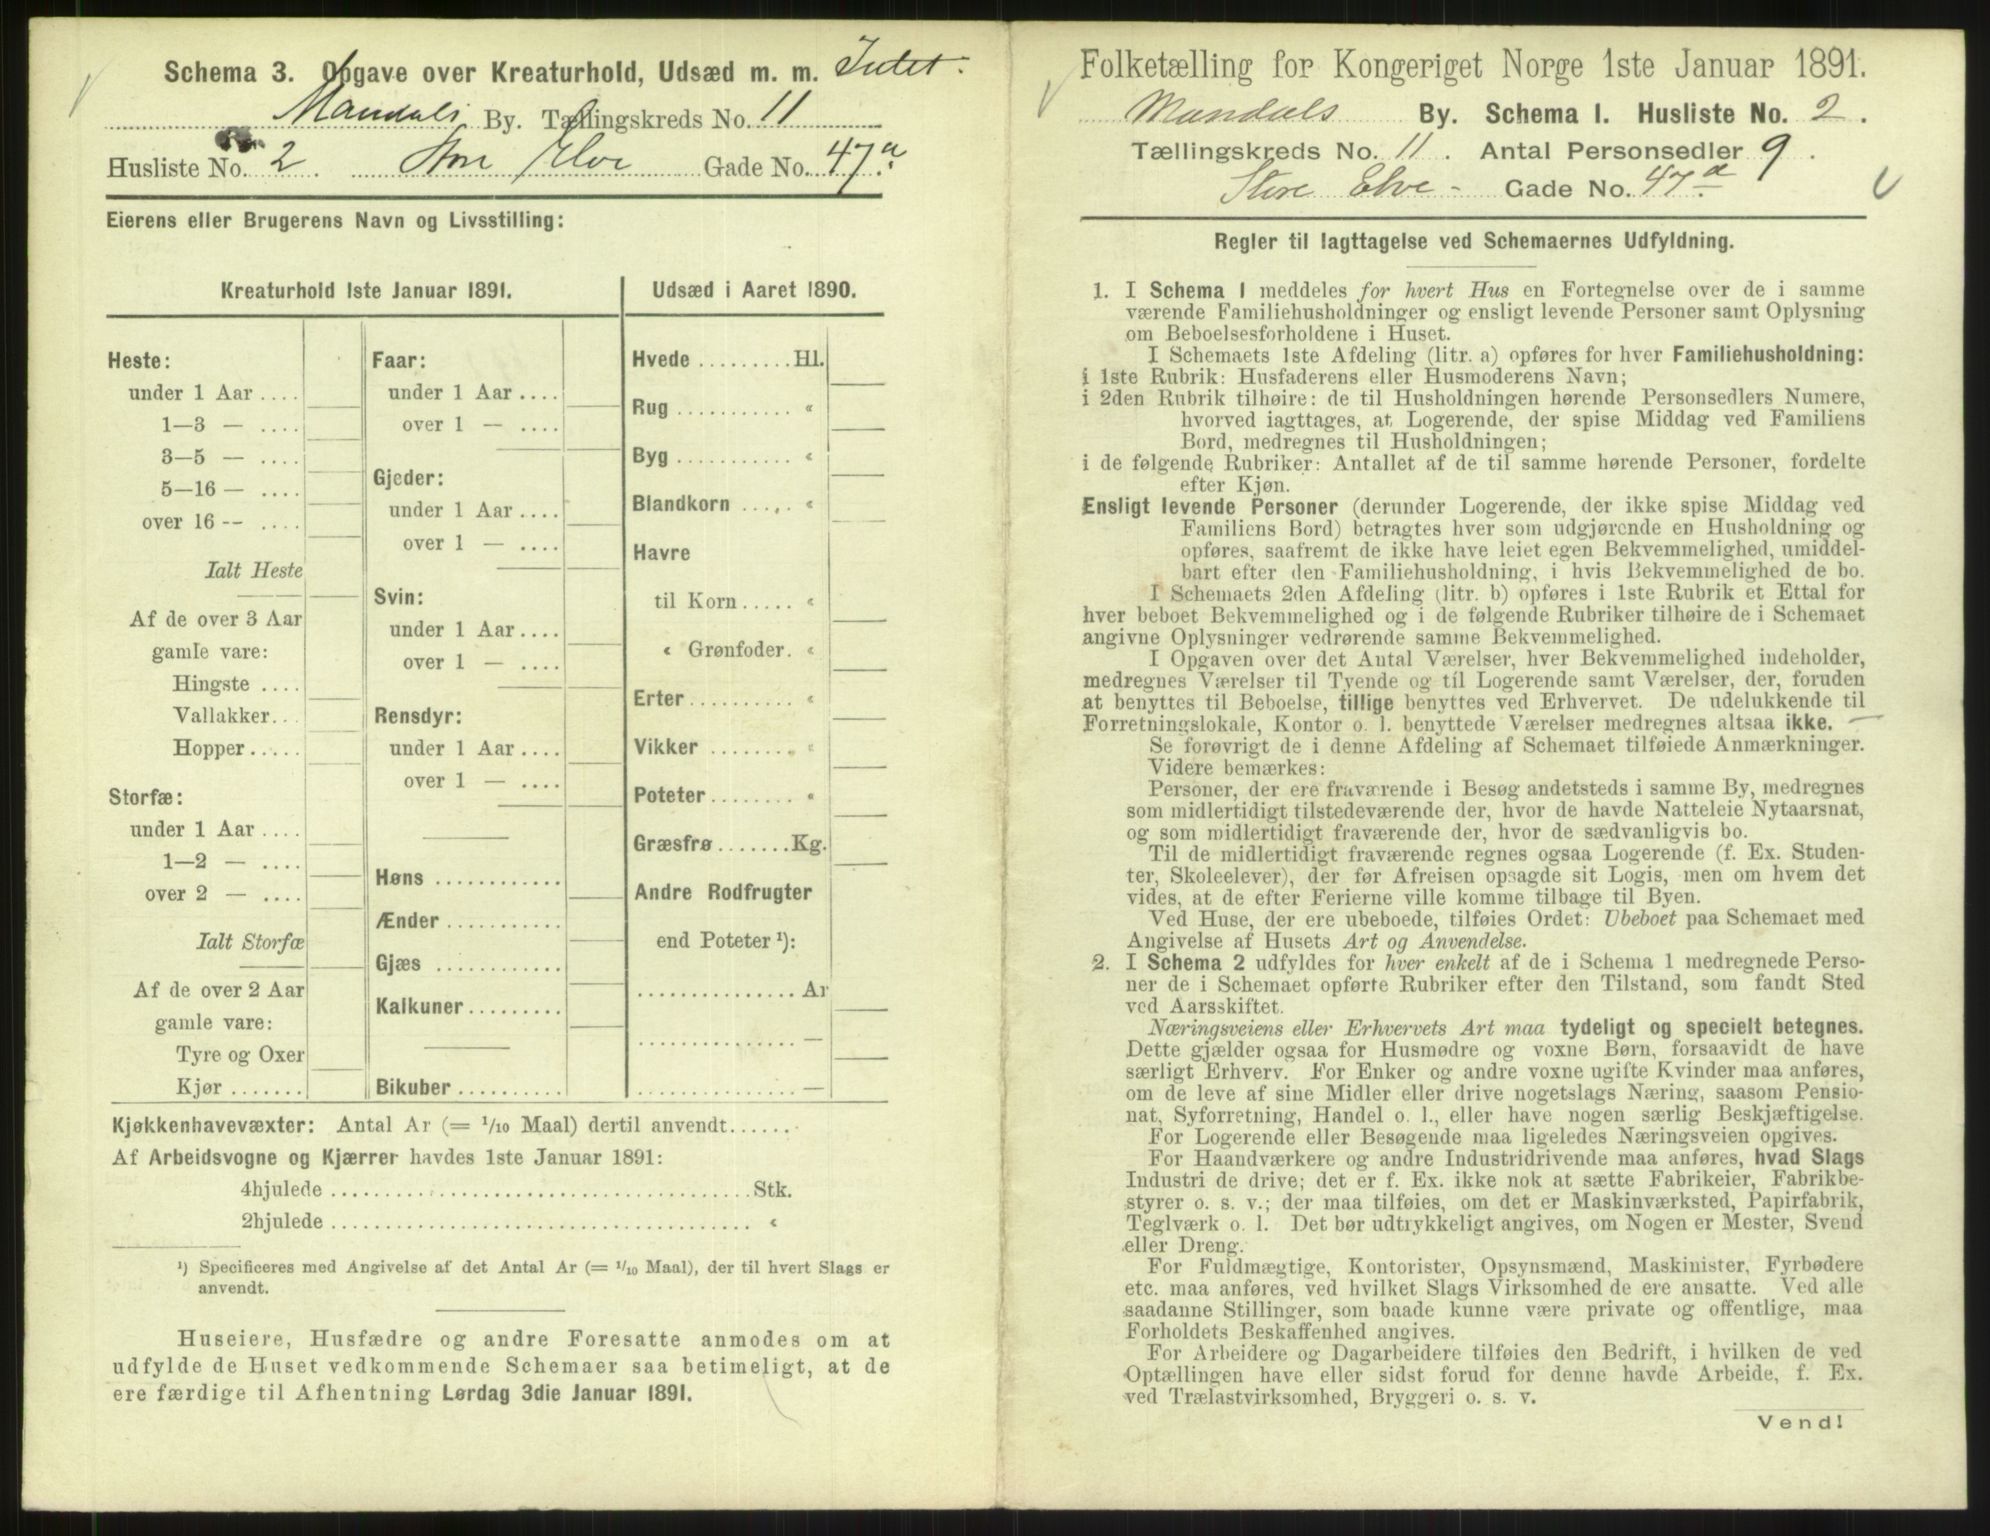 Schema 3. Opgave over Kreaturhold, Udsæd m. m. Intet.
Mandals By. Tællingskreds No. 11
Husliste No. 2. Store Elve Gade No. 47a.
Eierens eller Brugerens Navn og Livsstilling:
Kreaturhold 1ste Januar 1891.
Heste:
under 1 Aar ....
1—3 — ....
3—5 — ....
5—16 — ....
over 16 -- ....
Ialt Heste
Af de over 3 Aar
gamle vare:
Hingste ....
Vallakker...
Hopper.....
Storfæ:
under 1 Aar ....
1—2 — ....
over 2 — ....
Ialt Storfæ
Af de over 2 Aar
gamle vare:
Tyre og Oxer
Kjør .......
Faar:
under 1 Aar ....
over 1 — ....
Gjeder:
under 1 Aar ....
over 1 — ....
Svin:
under 1 Aar ....
over 1 — ....
Rensdyr:
under 1 Aar ....
over 1 — ....
Høns ............
Ænder ...........
Gjæs ............
Kalkuner.........
Bikuber ..........
Udsæd i Aaret 1890.
Hvede .........Hl.
Rug ........... «
Byg ........... «
Blandkorn ..... «
Havre
til Korn..... «
« Grønfoder. «
Erter .......... «
Vikker ........ «
Poteter........ «
Græsfrø.......Kg.
Andre Rodfrugter
end Poteter ¹):
............... Ar
............... —
............... —
Kjøkkenhavevæxter: Antal Ar (= 1/10 Maal) dertil anvendt......
Af Arbeidsvogne og Kjærrer havdes 1ste Januar 1891:
4hjulede .......................................Stk.
2hjulede ....................................... «
¹) Specificeres med Angivelse af det Antal Ar (= 1/10 Maal), der til hvert Slags er
anvendt.
Huseiere, Husfædre og andre Foresatte anmodes om at
udfylde de Huset vedkommende Schemaer saa betimeligt, at de
ere færdige til Afhentning Lørdag 3die Januar 1891.
Folketælling for Kongeriget Norge 1ste Januar 1891.
Mandals By. Schema I. Husliste No. 2.
Tællingskreds No. 11. Antal Personsedler 9.
Store Elve- Gade No. 47a.
Regler til Iagttagelse ved Schemaernes Udfyldning.
1. I Schema I meddeles for hvert Hus en Fortegnelse over de i samme
værende Familiehusholdninger og ensligt levende Personer samt Oplysning
om Beboelsesforholdene i Huset.
I Schemaets 1ste Afdeling (litr. a) opføres for hver Familiehusholdning:
i 1ste Rubrik: Husfaderens eller Husmoderens Navn;
i 2den Rubrik tilhøire: de til Husholdningen hørende Personsedlers Numere,
hvorved iagttages, at Logerende, der spise Middag ved Familiens
Bord, medregnes til Husholdningen;
i de følgende Rubriker: Antallet af de til samme hørende Personer, fordelte
efter Kjøn.
Ensligt levende Personer (derunder Logerende, der ikke spise Middag ved
Familiens Bord) betragtes hver som udgjørende en Husholdning og
opføres, saafremt de ikke have leiet egen Bekvemmelighed, umiddel-
bart efter den Familiehusholdning, i hvis Bekvemmelighed de bo.
I Schemaets 2den Afdeling (litr. b) opføres i 1ste Rubrik et Ettal for
hver beboet Bekvemmelighed og i de følgende Rubriker tilhøire de i Schemaet
angivne Oplysninger vedrørende samme Bekvemmelighed.
I Opgaven over det Antal Værelser, hver Bekvemmelighed indeholder,
medregnes Værelser til Tyende og til Logerende samt Værelser, der, foruden
at benyttes til Beboelse, tillige benyttes ved Erhvervet. De udelukkende til
Forretningslokale, Kontor o. l. benyttede Værelser medregnes altsaa ikke. —
Se forøvrigt de i denne Afdeling af Schemaet tilføiede Anmærkninger.
Videre bemærkes:
Personer, der ere fraværende i Besøg andetsteds i samme By, medregnes
som midlertidigt tilstedeværende der, hvor de havde Natteleie Nytaarsnat,
og som midlertidigt fraværende der, hvor de sædvanligvis bo.
Til de midlertidigt fraværende regnes ogsaa Logerende (f. Ex. Studen-
ter, Skoleelever), der før Afreisen opsagde sit Logis, men om hvem det
vides, at de efter Ferierne ville komme tilbage til Byen.
Ved Huse, der ere ubeboede, tilføies Ordet: Ubeboet paa Schemaet med
Angivelse af Husets Art og Anvendelse.
2. I Schema 2 udfyldes for hver enkelt af de i Schema 1 medregnede Perso-
ner de i Schemaet opførte Rubriker efter den Tilstand, som fandt Sted
ved Aarsskiftet.
Næringsveiens eller Erhvervets Art maa tydeligt og specielt betegnes.
Dette gjælder ogsaa for Husmødre og voxne Børn, forsaavidt de have
særligt Erhverv. For Enker og andre voxne ugifte Kvinder maa anføres,
om de leve af sine Midler eller drive nogetslags Næring, saasom Pensio-
nat, Syforretning, Handel o. l., eller have nogen særlig Beskjæftigelse.
For Logerende eller Besøgende maa ligeledes Næringsveien opgives.
For Haandværkere og andre Industridrivende maa anføres, hvad Slags
Industri de drive; det er f. Ex. ikke nok at sætte Fabrikeier, Fabrikbe-
styrer o. s. v.; der maa tilføies, om det er Maskinværksted, Papirfabrik,
Teglværk o. l. Det bør udtrykkeligt angives, om Nogen er Mester, Svend
eller Dreng.
For Fuldmægtige, Kontorister, Opsynsmænd, Maskinister, Fyrbødere
etc. maa anføres, ved hvilket Slags Virksomhed de ere ansatte. Ved alle
saadanne Stillinger, som baade kunne være private og offentlige, maa
Forholdets Beskaffenhed angives.
For Arbeidere og Dagarbeidere tilføies den Bedrift, i hvilken de ved
Optællingen have eller sidst forud for denne havde Arbeide, f. Ex.
ved Trælastvirksomhed, Bryggeri o. s. v.
Vend!